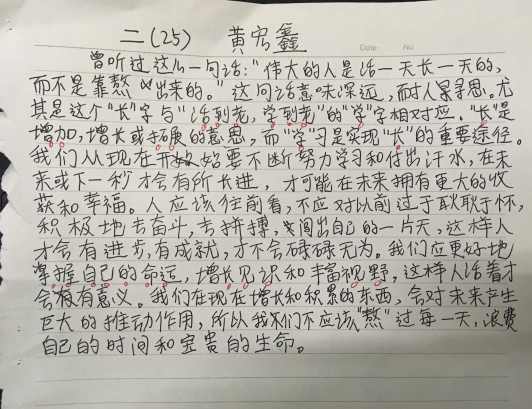 二(25) 黄宏鑫
Date No
曾听过这么一句话:"伟大的人是活一天长一天的,
而不是靠熬出来的。"这句话意味深远,而耐人寻思。尤
其是这个"长"字与"活到老,学到老"的"学"字相对应。"长"是
增加,增长或拓展的意思,而"学"习是实现"长"的重要途径。
我们从现在开始要不断努力学习和付出汗水,在未
来或下一秒才会有所长进,才可能在未来拥有更大的收
获和幸福。人应该往前看,不应对以前过于耿耿于怀,
积极地去奋斗,去拼搏,闯出自己的一片天,这样人
才会有进步,有成就,才不会碌碌无为。我们应更好地
掌握自己的命运,增长见识和丰富视野,这样人活着才
会有意义。我们在现在增长和积累的东西,会对未来产生
巨大的推动作用,所以我们不应该"熬"过每一天,浪费
自己的时间和宝贵的生命。